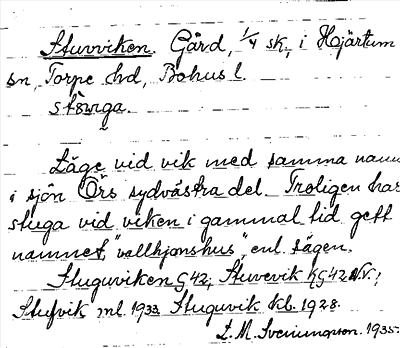 Stuvviken. Gård, 1/4 sk, i Hjärtum
sn, Torpe hd, Bohus l.
Läge vid vik med samma namn
i sjön Örs sydvästra del. Troligen har
stuga vid viken i gammal tid gett
namnet, "vallhjonshus", enl. sägen.
Stuguviken G 42, Stuvevik KG 42 N.V.,
Stufvik ml. 1933 Stuguvik kb. 1928.
1935.